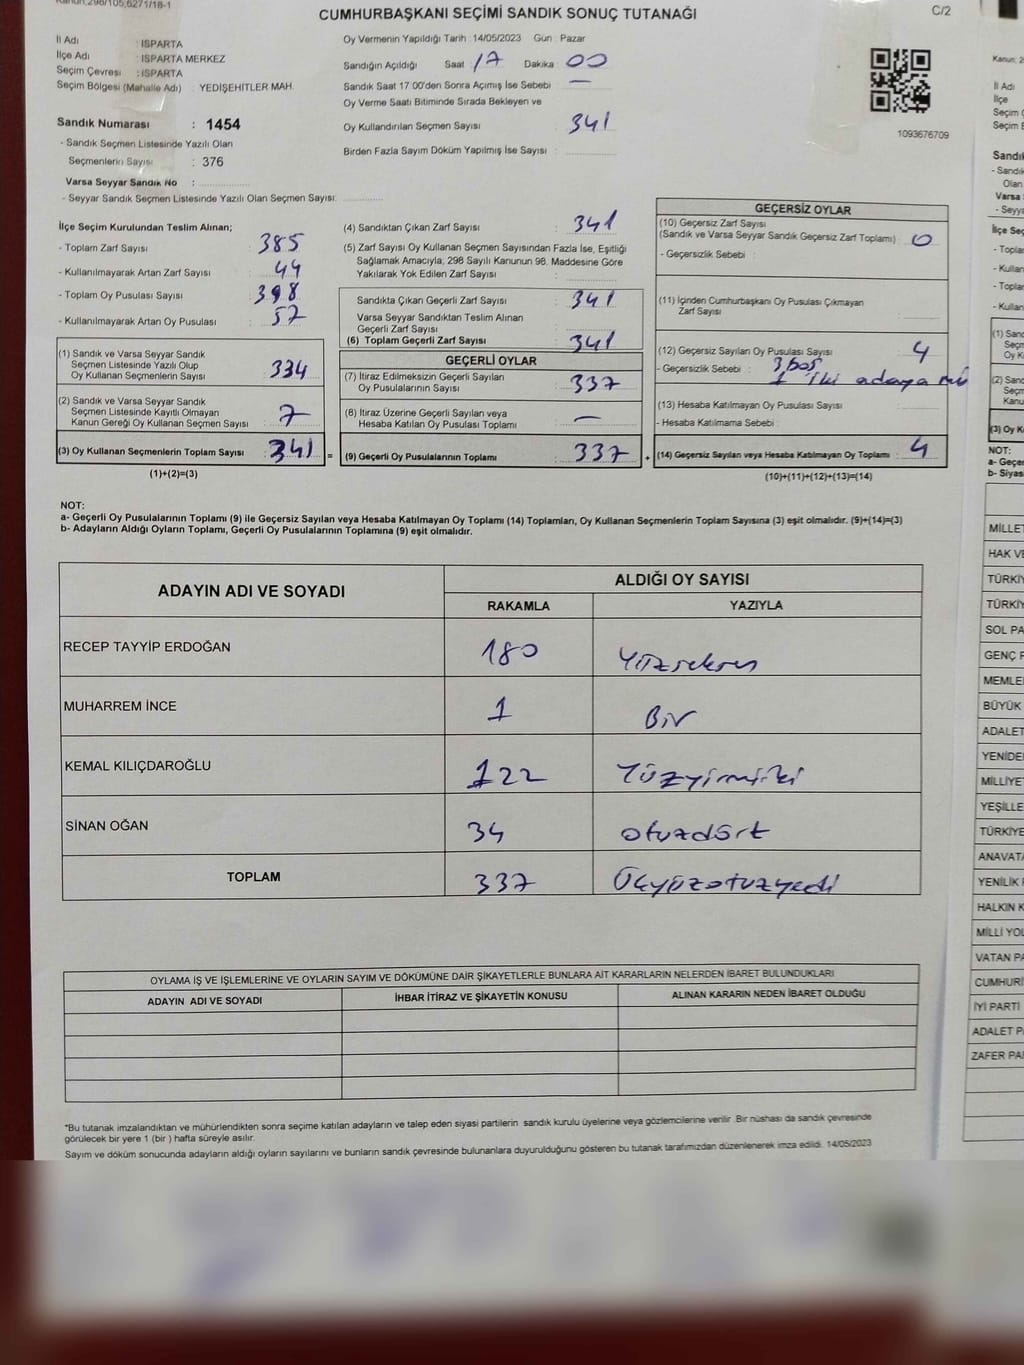 Kanun,298/105,6271/18-1
CUMHURBAŞKANI SEÇİMİ SANDIK SONUÇ TUTANAĞI
C/2
İl Adı : ISPARTA
İlçe Adı : ISPARTA MERKEZ
Seçim Çevresi : ISPARTA
Seçim Bölgesi (Mahalle Adı) : YEDİŞEHİTLER MAH.
Sandık Numarası : 1454
- Sandık Seçmen Listesinde Yazılı Olan
Seçmenlerin Sayısı : 376
Varsa Seyyar Sandık No :
- Seyyar Sandık Seçmen Listesinde Yazılı Olan Seçmen Sayısı:
Oy Vermenin Yapıldığı Tarih : 14/05/2023 Gün : Pazar
Sandığın Açıldığı Saat 17 Dakika 00
Sandık Saat 17:00'den Sonra Açımış İse Sebebi —
Oy Verme Saati Bitiminde Sırada Bekleyen ve
Oy Kullandırılan Seçmen Sayısı : 341
Birden Fazla Sayım Döküm Yapılmış İse Sayısı :
1093676709
İlçe Seçim Kurulundan Teslim Alınan;
- Toplam Zarf Sayısı : 385
- Kullanılmayarak Artan Zarf Sayısı : 44
- Toplam Oy Pusulası Sayısı : 398
- Kullanılmayarak Artan Oy Pusulası : 57
(1) Sandık ve Varsa Seyyar Sandık
Seçmen Listesinde Yazılı Olup
Oy Kullanan Seçmenlerin Sayısı : 334
(2) Sandık ve Varsa Seyyar Sandık
Seçmen Listesinde Kayıtlı Olmayan
Kanun Gereği Oy Kullanan Seçmen Sayısı : 7
(3) Oy Kullanan Seçmenlerin Toplam Sayısı : 341
(1)+(2)=(3)
(4) Sandıktan Çıkan Zarf Sayısı : 341
(5) Zarf Sayısı Oy Kullanan Seçmen Sayısından Fazla İse, Eşitliği
Sağlamak Amacıyla; 298 Sayılı Kanunun 98. Maddesine Göre
Yakılarak Yok Edilen Zarf Sayısı :
Sandıkta Çıkan Geçerli Zarf Sayısı : 341
Varsa Seyyar Sandıktan Teslim Alınan
Geçerli Zarf Sayısı :
(6) Toplam Geçerli Zarf Sayısı : 341
GEÇERLİ OYLAR
(7) İtiraz Edilmeksizin Geçerli Sayılan
Oy Pusulalarının Sayısı : 337
(8) İtiraz Üzerine Geçerli Sayılan veya
Hesaba Katılan Oy Pusulası Toplamı : —
= (9) Geçerli Oy Pusulalarının Toplamı : 337
GEÇERSİZ OYLAR
(10) Geçersiz Zarf Sayısı
(Sandık ve Varsa Seyyar Sandık Geçersiz Zarf Toplamı) : 0
- Geçersizlik Sebebi :
(11) İçinden Cumhurbaşkanı Oy Pusulası Çıkmayan
Zarf Sayısı :
(12) Geçersiz Sayılan Oy Pusulası Sayısı : 4
- Geçersizlik Sebebi : 3 boş
1 iki adaya
(13) Hesaba Katılmayan Oy Pusulası Sayısı :
- Hesaba Katılmama Sebebi :
+ (14) Geçersiz Sayılan veya Hesaba Katılmayan Oy Toplamı : 4
(10)+(11)+(12)+(13)=(14)
NOT:
a- Geçerli Oy Pusulalarının Toplamı (9) ile Geçersiz Sayılan veya Hesaba Katılmayan Oy Toplamı (14) Toplamları, Oy Kullanan Seçmenlerin Toplam Sayısına (3) eşit olmalıdır. (9)+(14)=(3)
b- Adayların Aldığı Oyların Toplamı, Geçerli Oy Pusulalarının Toplamına (9) eşit olmalıdır.
ADAYIN ADI VE SOYADI
ALDIĞI OY SAYISI
RAKAMLA YAZIYLA
RECEP TAYYİP ERDOĞAN 180 Yüzseksen
MUHARREM İNCE 1 Bir
KEMAL KILIÇDAROĞLU 122 Yüzyirmiiki
SİNAN OĞAN 34 otuzdört
TOPLAM 337 Üçyüzotuzyedi
OYLAMA İŞ VE İŞLEMLERİNE VE OYLARIN SAYIM VE DÖKÜMÜNE DAİR ŞİKAYETLERLE BUNLARA AİT KARARLARIN NELERDEN İBARET BULUNDUKLARI
ADAYIN ADI VE SOYADI İHBAR İTİRAZ VE ŞİKAYETİN KONUSU ALINAN KARARIN NEDEN İBARET OLDUĞU
*Bu tutanak imzalandıktan ve mühürlendikten sonra seçime katılan adayların ve talep eden siyasi partilerin sandık kurulu üyelerine veya gözlemcilerine verilir. Bir nüshası da sandık çevresinde
görülecek bir yere 1 (bir ) hafta süreyle asılır.
Sayım ve döküm sonucunda adayların aldığı oyların sayılarını ve bunların sandık çevresinde bulunanlara duyurulduğunu gösteren bu tutanak tarafımızdan düzenlenerek imza edildi. 14/05/2023
Kanun; 2
İl Adı
İlçe
Seçim Ç
Seçim B
Sandı
- Sandık
Olan
Varsa
- Seyya
İlçe Seç
- Topla
- Kullan
- Toplar
- Kullan
(1) Sand
Seçm
Oy K
(2) Sand
Seçm
Kanu
(3) Oy K
NOT:
a- Geçer
b- Siyas
MİLLET
HAK VE
TÜRKİY
TÜRKİY
SOL PA
GENÇ P
MEMLE
BÜYÜK
ADALET
YENİDE
MİLLİYE
YEŞİLLE
TÜRKİYE
ANAVATA
YENİLİK P
HALKIN K
MİLLİ YOL
VATAN PA
CUMHURİ
İYİ PARTİ
ADALET P
ZAFER PA